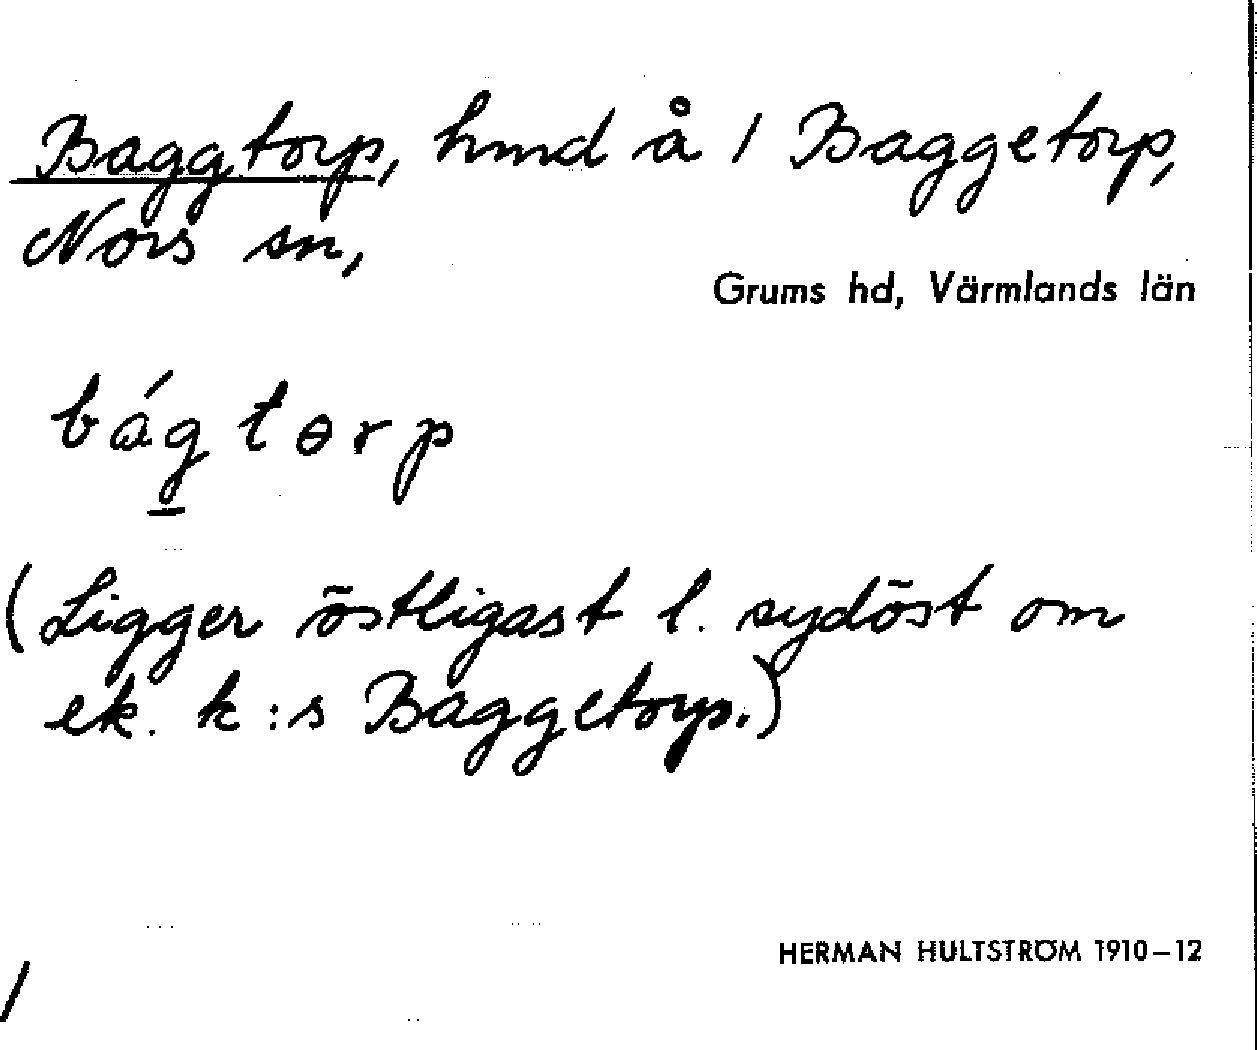 Baggtorp, hmd å 1 Baggetorp,
Nors sn,
Grums hd, Värmlands län
bágtɵrp
(Ligger östligast l. sydöst om
ek. k:s Baggetorp.)
HERMAN HULTSTRÖM 1910–12
/